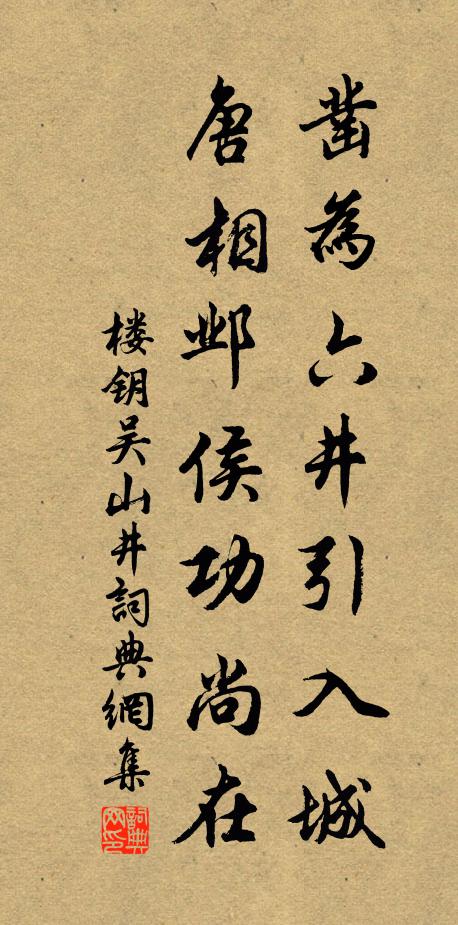 凿為六井引入城
唐相邺侯功尚在
楼钥吴山井詞典網集
詞典网印